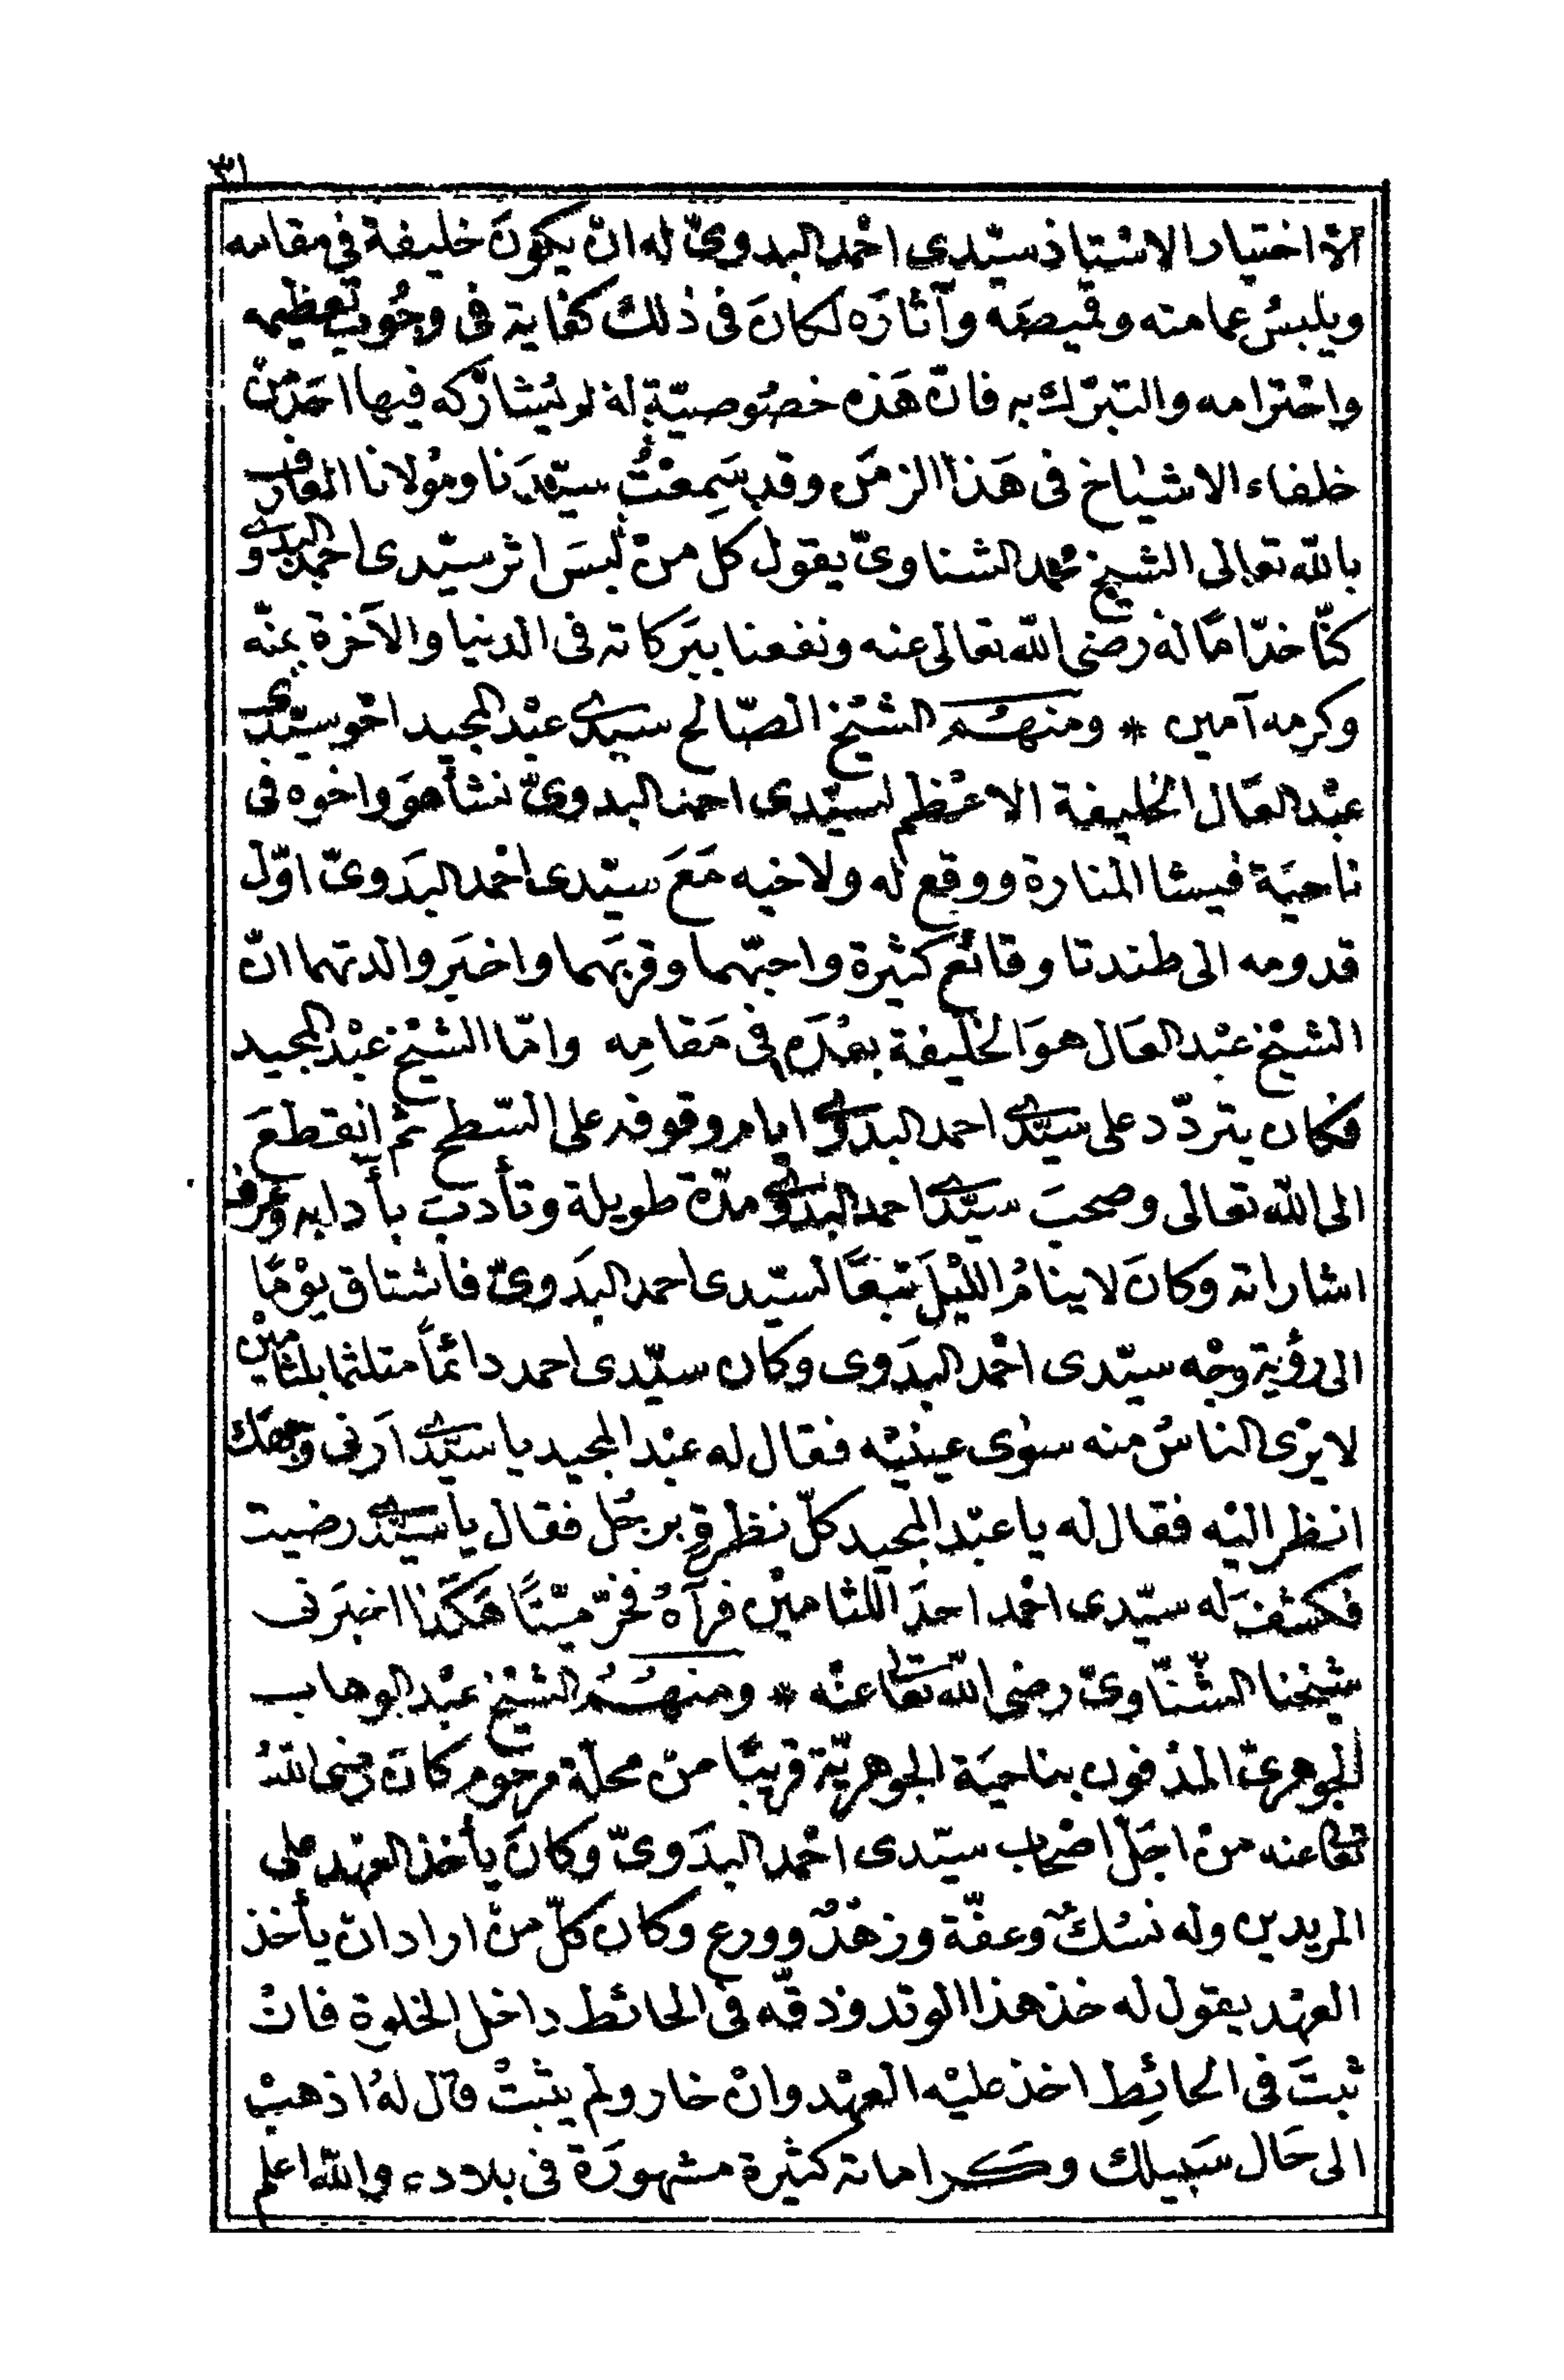 ٣١
الا اختيار الاستاذ سيّدى احْمد البدوىّ له ان يكونَ خليفة فى مقامه
ويلبسُ عمامته وقميصَه وآثارَه لكانَ فى ذلك كفاية فى وجُوب تعظيمه
واحْترامه والتبرّك به فانّ هَذه خصُوصيّة لهُ لم يُشارَكه فيها احَد منْ
خلفاء الاشياخ فى هَذا الزمَن وقد سَمِعْتُ سيّدَنا ومَولانا العارف
بالله تعالى الشيخ محمد الشناوىّ يقول كل منْ لبسَ اثر سيّدى احمد البدوى
كنّا خدّامًا لهُ رضى الله تعالى عنه ونفعنا ببَركاته فى الدنيا والآخرة بمنّه
وكرمه آمين * ومنهُم الشيْخ الصّالح سيدى عبْد المجيد اخو سيّدى
عبْد العَال الخليفة الاعْظم لسيّدى احمد البدوىّ نشأ هوَ واخوه فى
ناحيَة فيشا المنارة ووقع له ولاخيه مَعَ سيّدى احْمد البَدَوىّ اوّل
قدومه الى طندتا وقائع كثيرة واحبّهما وقربَهما واخبَر والدتهما انّ
الشيْخ عبْد العَال هوَ الخليفة بعْدَه فى مَقامِه وامّا الشيْخ عبْد المجيد
فكان يتردّد على سيّدى احمد البدوى ايام وقوفه على السّطح ثم انقطعَ
الى الله تعالى وصحبَ سيّدى احمد البدوى مدّة طويلة وتأدبَ بآدابه وعرف
اشاراته وكانَ لا ينامُ الليْلَ تبعًا لسيّدى احمد البَدَوىّ فاشتاق يوْمًا
الى رؤية وجْه سيّدى احْمد البَدَوى وكان سيّدى احمد دائماً متلثما بلثامين
لا يرَى الناسُ منه سوٰى عينيْه فقال له عبْد المجيد يا سيّدى اَرنى وجهَك
انظر اليْه فقال له يا عبْد المجيد كلّ نظرةٍ برجُل فقال يا سيّدى رضيت
فكشفَ له سيّدى احْمد احدَ اللثامين فرآهُ فخرّ ميّتًا هَكَذا اخبَرنى
شيخنا الشّنّاوىّ رضى الله تعالى عنْه * ومنهُم الشيْخ عبْد الوهاب
الجوهرىّ المدْفون بناحيَة الجوهريّة قريبًا منْ محلّة مرحوم كانَ رضى اللهُ
تعالى عنه منْ اجَلّ اصْحاب سيّدى احْمد البدَوىّ وكانَ يأخذ العهْد على
المريدين وله نسُكٌ وعفّة وزهْدٌ وورع وكان كلّ منْ اراد ان يأخذ
العهْد يقول له خذ هذا الوتد ودقّه فى الحائط داخل الخلوة فانْ
ثبتَ فى الحائِط اخذ عليْه العهْد وانْ خار ولم يثبتْ قال لهُ اذهبْ
الى حَال سَبيلك وكراماته كثيرة مشهورَة فى بلاده والله اعلم